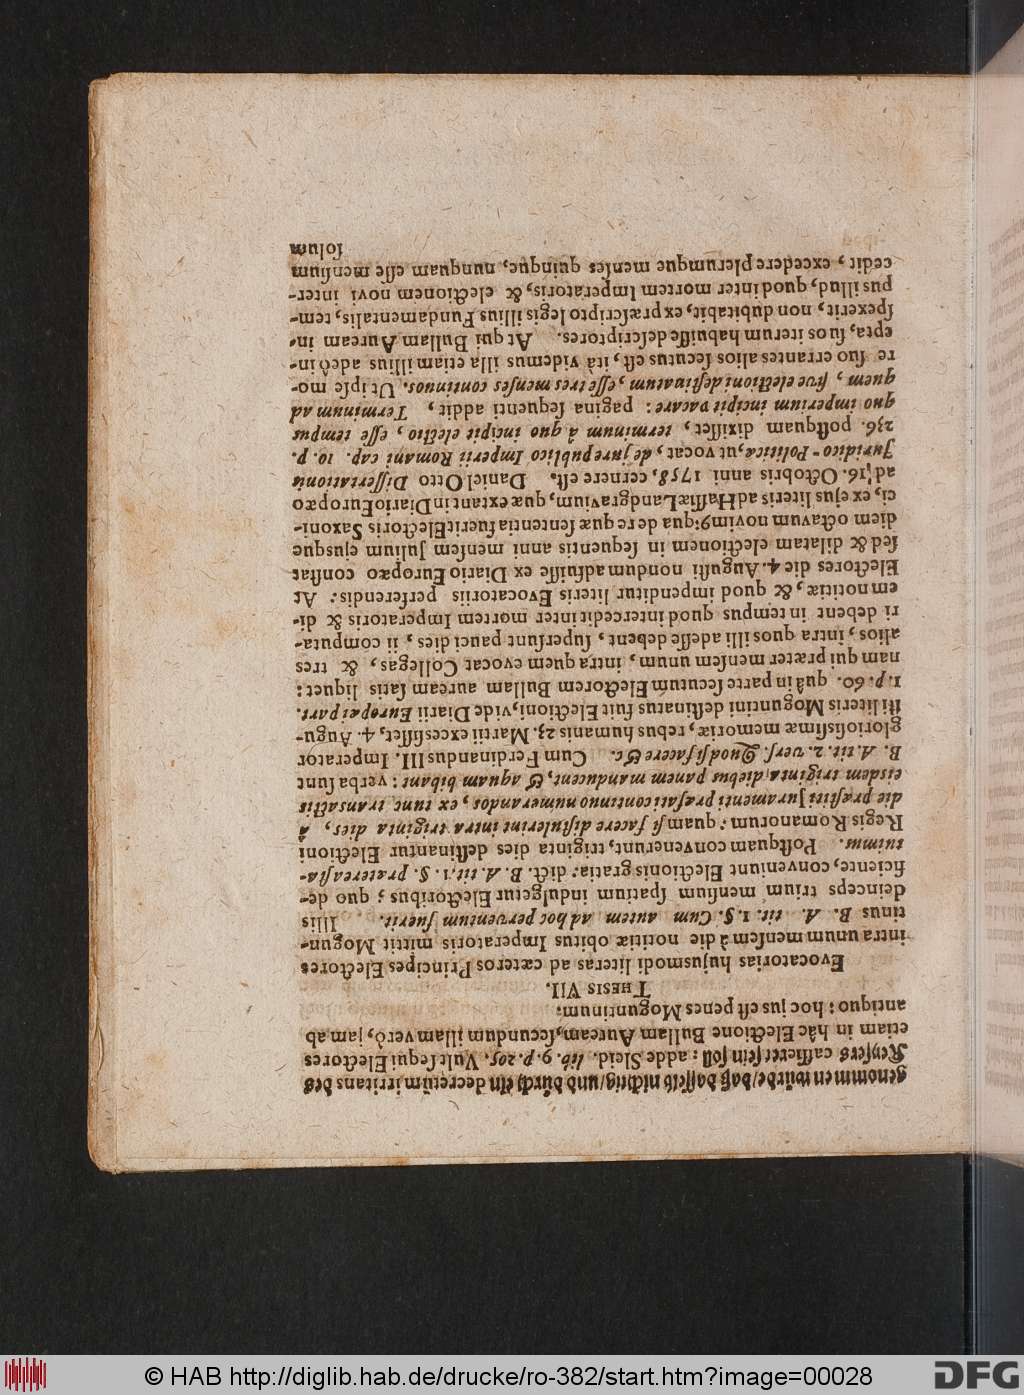 genommen würde/ daß dasselb nichtig/ und durch ein decretum irritans des
Keysers cassieret sein soll: adde Sleid. lib. 9. p. 205. Vult sequi Electores
etiam in hâc Electione Bullam Auream, secundum illam verò, jam ab
antiquo: hoc jus est penes Moguntinum:
THESIS VII.
Evocatorias hujusmodi literas ad cæteros Principes Electores
intra unum mensem à die notitiæ obitus Imperatoris mittit Mogun-
tinus B. A. tit. 1. §. Cum autem ad hoc perventum fuerit. Illis
deinceps trium mensium spatium indulgetur Electoribus; quo de-
ficiente, conveniunt Electionis gratia: dict. B. A. tit. 1. §. præterea sta-
tuimus. Postquam convenerunt, triginta dies destinantur Electioni
Regis Romanorum: quam si facere distulerint intra triginta dies, à
die præstiti Juramenti præfati continuo numerandos, ex tunc transactis
eisdem triginta diebus panem manducent, & aquam bibant: verba sunt
B. A. tit. 2. vers. Quod si facere &c. Cum Ferdinandus III. Imperator
gloriosissimæ memoriæ, rebus humanis 23. Martii excessisset, 4. Augu-
sti literis Moguntini destinatus fuit Electioni, vide Diarii Europæi part.
1. p. 60. quâ in parte secutum Electorem Bullam auream satis liquet:
nam qui præter mensem unum, intra quem evocat Collegas, & tres
alios, intra quos illi adesse debent, supersunt pauci dies, ii computa-
ri debent in tempus quod intercedit inter mortem Imperatoris & di-
em notitiæ, & quod impenditur literis Evocatoriis perferendis: At
Electores die 4. Augusti nondum adfuisse ex Diario Europæo constat
sed & dilatam electionem in sequentis anni mensem Julium ejusque
diem octavum novim9: qua de re quæ sententia fuerit Electoris Saxoni-
ci, ex ejus literis ad Hassiæ Landgravium, quæ extant in Diario Europæo
ad 16. Octobris anni 1758, cernere est. Daniel Otto Dissertationis
Juridico-Politica, ut vocat, de jure publico Imperii Romani cap. 10. p.
236. postquam dixisset, terminum à quo incipit electio, esse tempus
quo imperium incipit vacare: pagina sequenti addit, Terminum ad
quem, sive electioni destinatum, esse tres menses continuos. Ut ipse mo-
re suo errantes alios secutus est, itâ videmus illa etiam illius adeò in-
epta, suos iterum habuisse descriptores. At qui Bullam Auream in-
spexerit, non dubitabit, ex præscripto legis illius Fundamentalis, tem-
pus illud, quod inter mortem Imperatoris, & electionem novi inter-
cedit, excedere plerumque menses quinque, nunquam esse mensium
solum
© HAB http://diglib.hab.de/drucke/ro-382/start.htm?image=00028
DFG